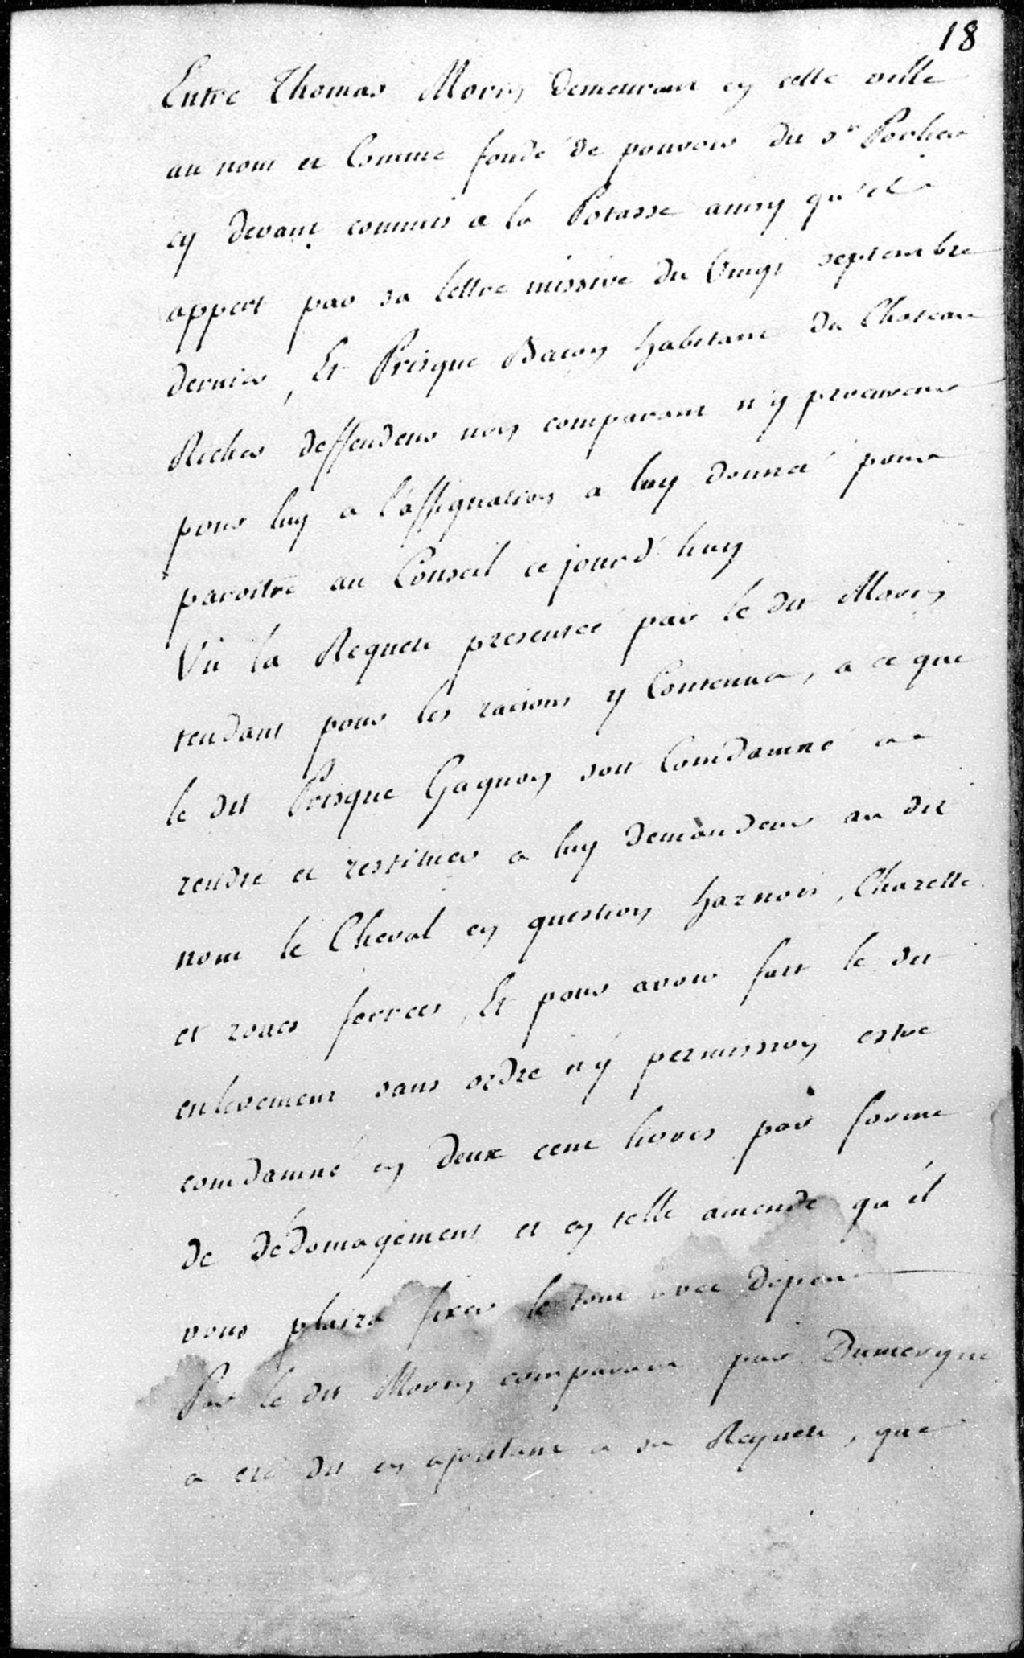 18
Entre Thomas Morin demeurant en cette ville
au nom et Comme fondé de pouvoir du Sr Porlier
cy devant commis a la Potasse ainsy qu'il
appert par sa lettre missive du Vingt septembre
dernier, Et Prisque habitant du Chateau
Richer deffendeur non comparant n'y procureur
pour luy a l'assignation a luy donneé pour
paroitre au Conseil ce jourd'huy
Vu la Requete presentée par le dit Morin
tendant pour les raisons y Contenue, a ce que
le dit Prisque Gagnon soit Condamné a
rendre et restituer a luy demandeur au dit
nom le Cheval en question harnois, Charette
et roues ferrees, Et pour avoir fait le dit
enlevement sans ordre n'y permission estre
condamné en deux cent livres par forme
de dédomagement et en telle amende qu'il
vous plaira fixer le tout avec depens
Par le dit Morin comparant par Dumergue
a été dit en ajoutant a sa Requete, que